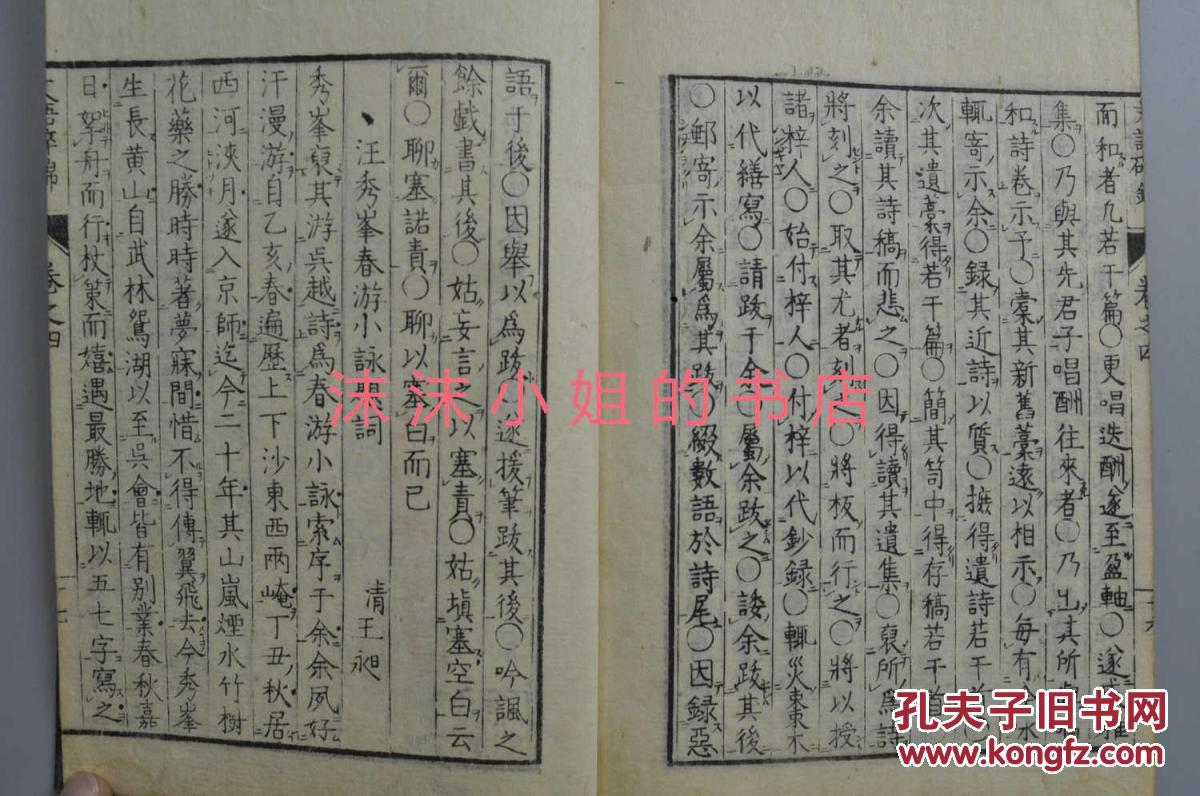 而和者凡若干篇〇更唱迭酬遂至盈軸〇遂
集〇乃與其先君子唱酬往來者〇乃出其所
和詩卷示予〇彙其新舊藁遠以相示〇每有
輒寄示余〇録其近詩以質〇摭得遺詩若干
次其遺藁得若干篇〇簡其笥中得存稿若干首
余讀其詩稿而悲之〇因得讀其遺集〇裒所爲詩
將刻之〇取其尤者刻〇將板而行之〇將以授
諸梓人〇始付梓人〇付梓以代鈔録〇輒災東棗不
以代繕寫〇請跋于余〇屬余跋之〇諉余跋其後
〇郵寄示余屬爲其跋〇綴數語於詩尾〇因録惡
卷之四
語于後〇因舉以爲跋〇遂援筆跋其後〇吟諷之
餘戲書其後〇姑妄言之以塞責〇姑塡塞空白云
爾〇聊塞諾責〇聊以塞白而已
汪秀峯春游小詠題詞
清王昶
秀峯裒其游吳越詩爲春游小詠索序于余余夙好
汗漫游自乙亥春遍歷上下沙東西兩崦丁丑秋居
西河浹月遂入京師迄今二十年其山嵐煙水竹樹
花藥之勝時時著夢寐間惜不得傳翼飛去今秀峯
生長黄山自武林鴛湖以至吳會皆有別業春秋嘉
日挐舟而行杖策而嬉遇最勝地輒以五七字寫之
卷之四
沫沫小姐的书店
孔夫子旧书网
www.kongfz.com